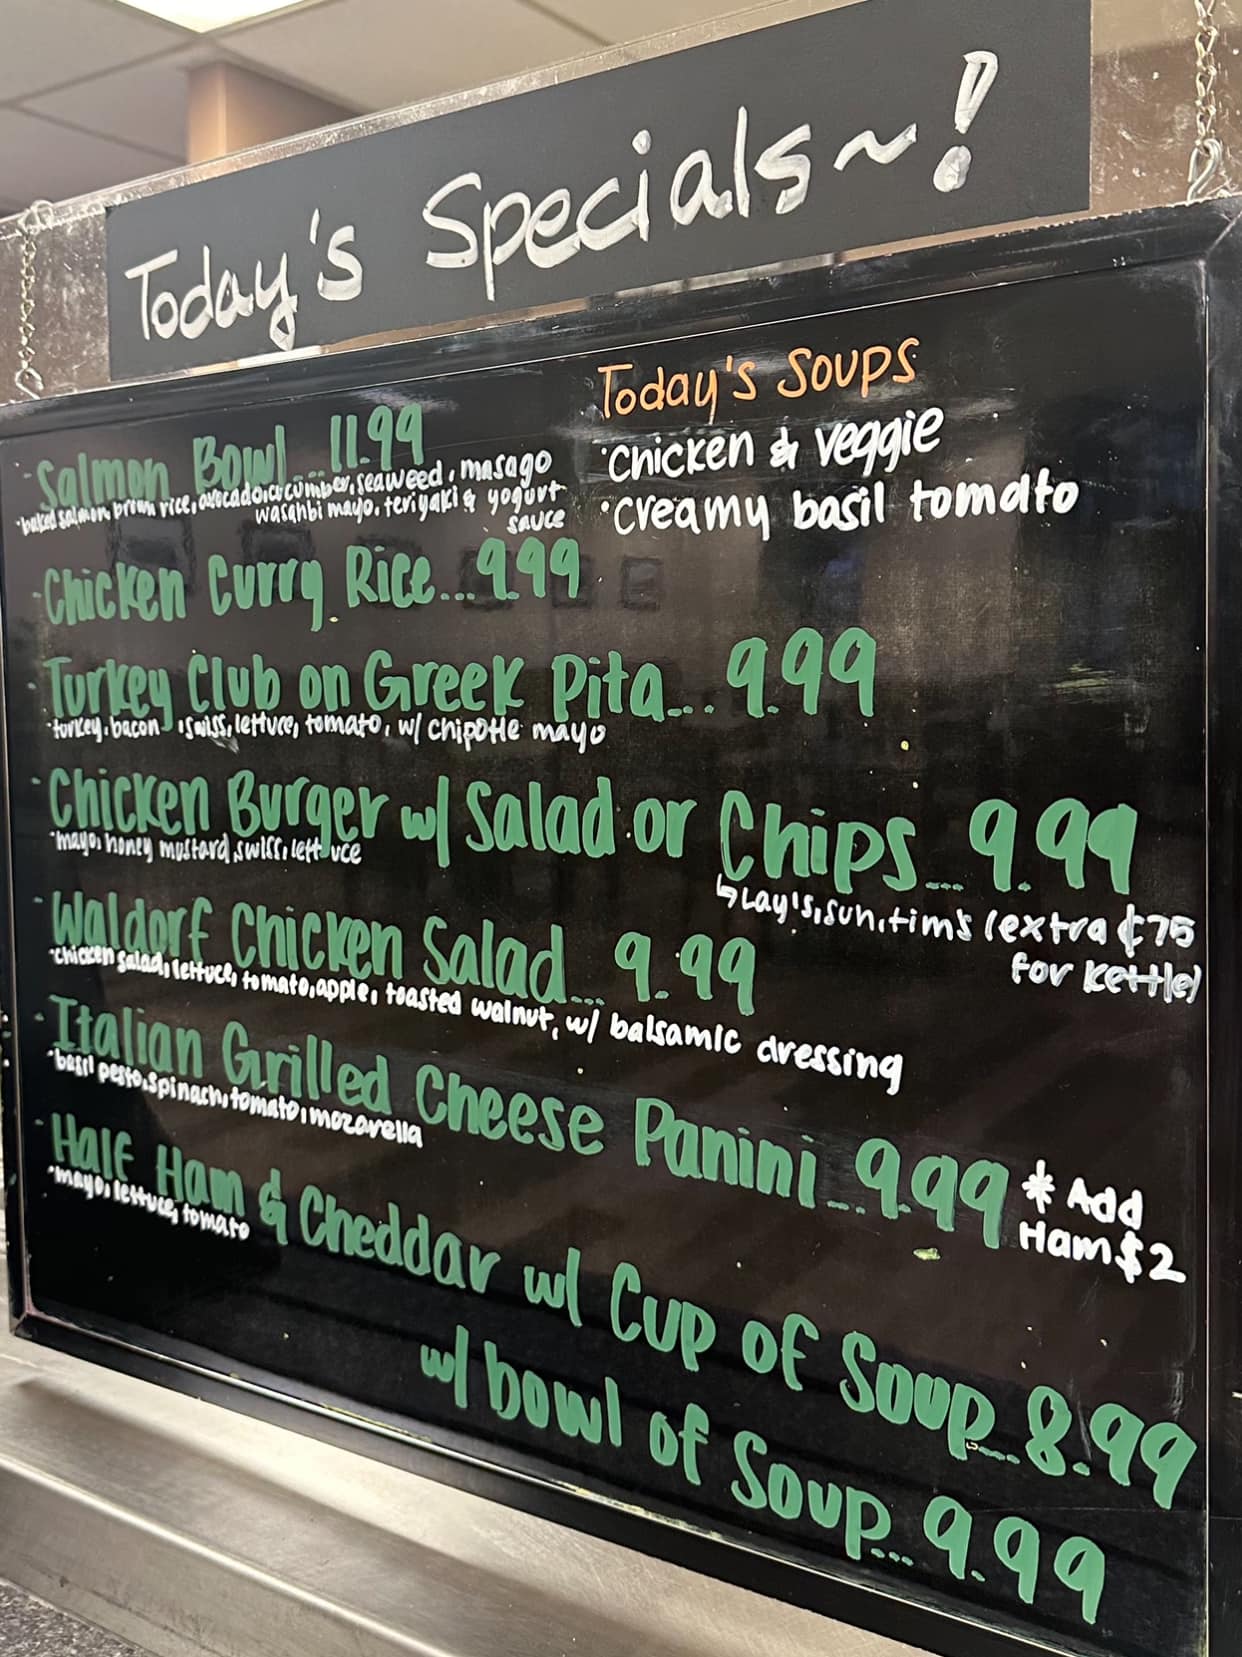 Today's Specials~!
Today's Soups
·Chicken & veggie
·creamy basil tomato
-Salmon Bowl...11.99
·baked salmon, brown rice, avocado, cucumber, seaweed, masago
wasanbi mayo, teriyaki & yogurt
sauce
-Chicken Curry Rice...9.99
-Turkey Club on Greek Pita...9.99
·turkey, bacon, swiss, lettuce, tomato, w/ chipotle mayo
-Chicken Burger w/ Salad or Chips...9.99
·mayo, honey mustard, swiss, lettuce
↳Lay's, sun, tim's (extra ¢75
for kettle)
-Waldorf Chicken Salad...9.99
·chicken salad, lettuce, tomato, apple, toasted walnut, w/ balsamic dressing
-Italian Grilled Cheese Panini...9.99 * Add
Ham $2
·basil pesto, spinach, tomato, mozarella
-Half Ham & Cheddar w/ Cup of Soup...8.99
·mayo, lettuce, tomato
w/ bowl of Soup...9.99